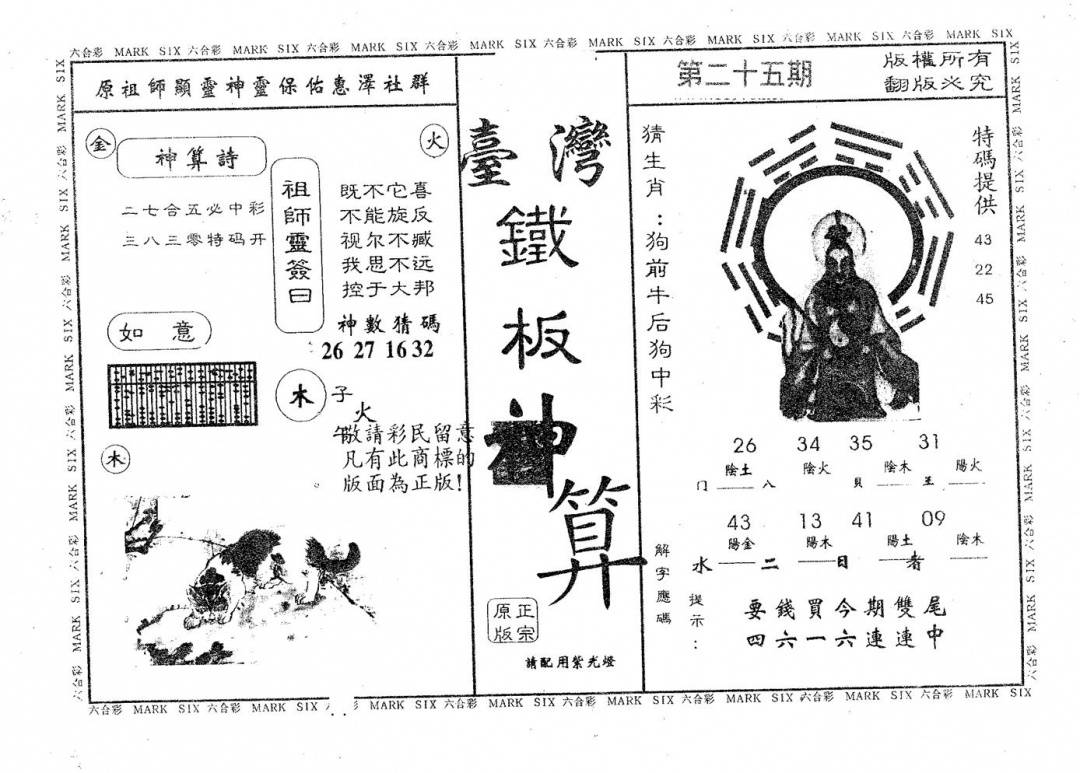 六合彩 MARK SIX 六合彩 MARK SIX 六合彩 MARK SIX 六合彩 MARK SIX 六合彩 MARK SIX 六合彩 MARK SIX 六合彩 MARK SIX 六合彩 MARK SIX
原祖師顯靈神靈保佑惠澤社群
金
神算詩
火
二七合五必中彩
三八三零特码开
祖師靈簽曰
既不它喜
不能旋反
视尔不臧
我思不远
控于大邦
神數猜碼
26 27 16 32
如意
木
子
火
午
敬請彩民留意
凡有此商標的
版面為正版!
木
臺灣
鐵
板
神
算
正宗
原版
請配用紫光燈
第二十五期
版權所有
翻版必究
猜生肖:狗前牛后狗中彩
特碼提供
43
22
45
26 34 35 31
陰土 陰火 陰木 陽火
门 八 貝 王
43 13 41 09
陽金 陽木 陽土 陰木
水 二 日 者
解字應碼
提示:
要錢買今期雙尾
四六一六連連中
六合彩 MARK SIX 六合彩 MARK SIX 六合彩 MARK SIX 六合彩 MARK SIX 六合彩 MARK SIX 六合彩 MARK SIX 六合彩 MARK SIX